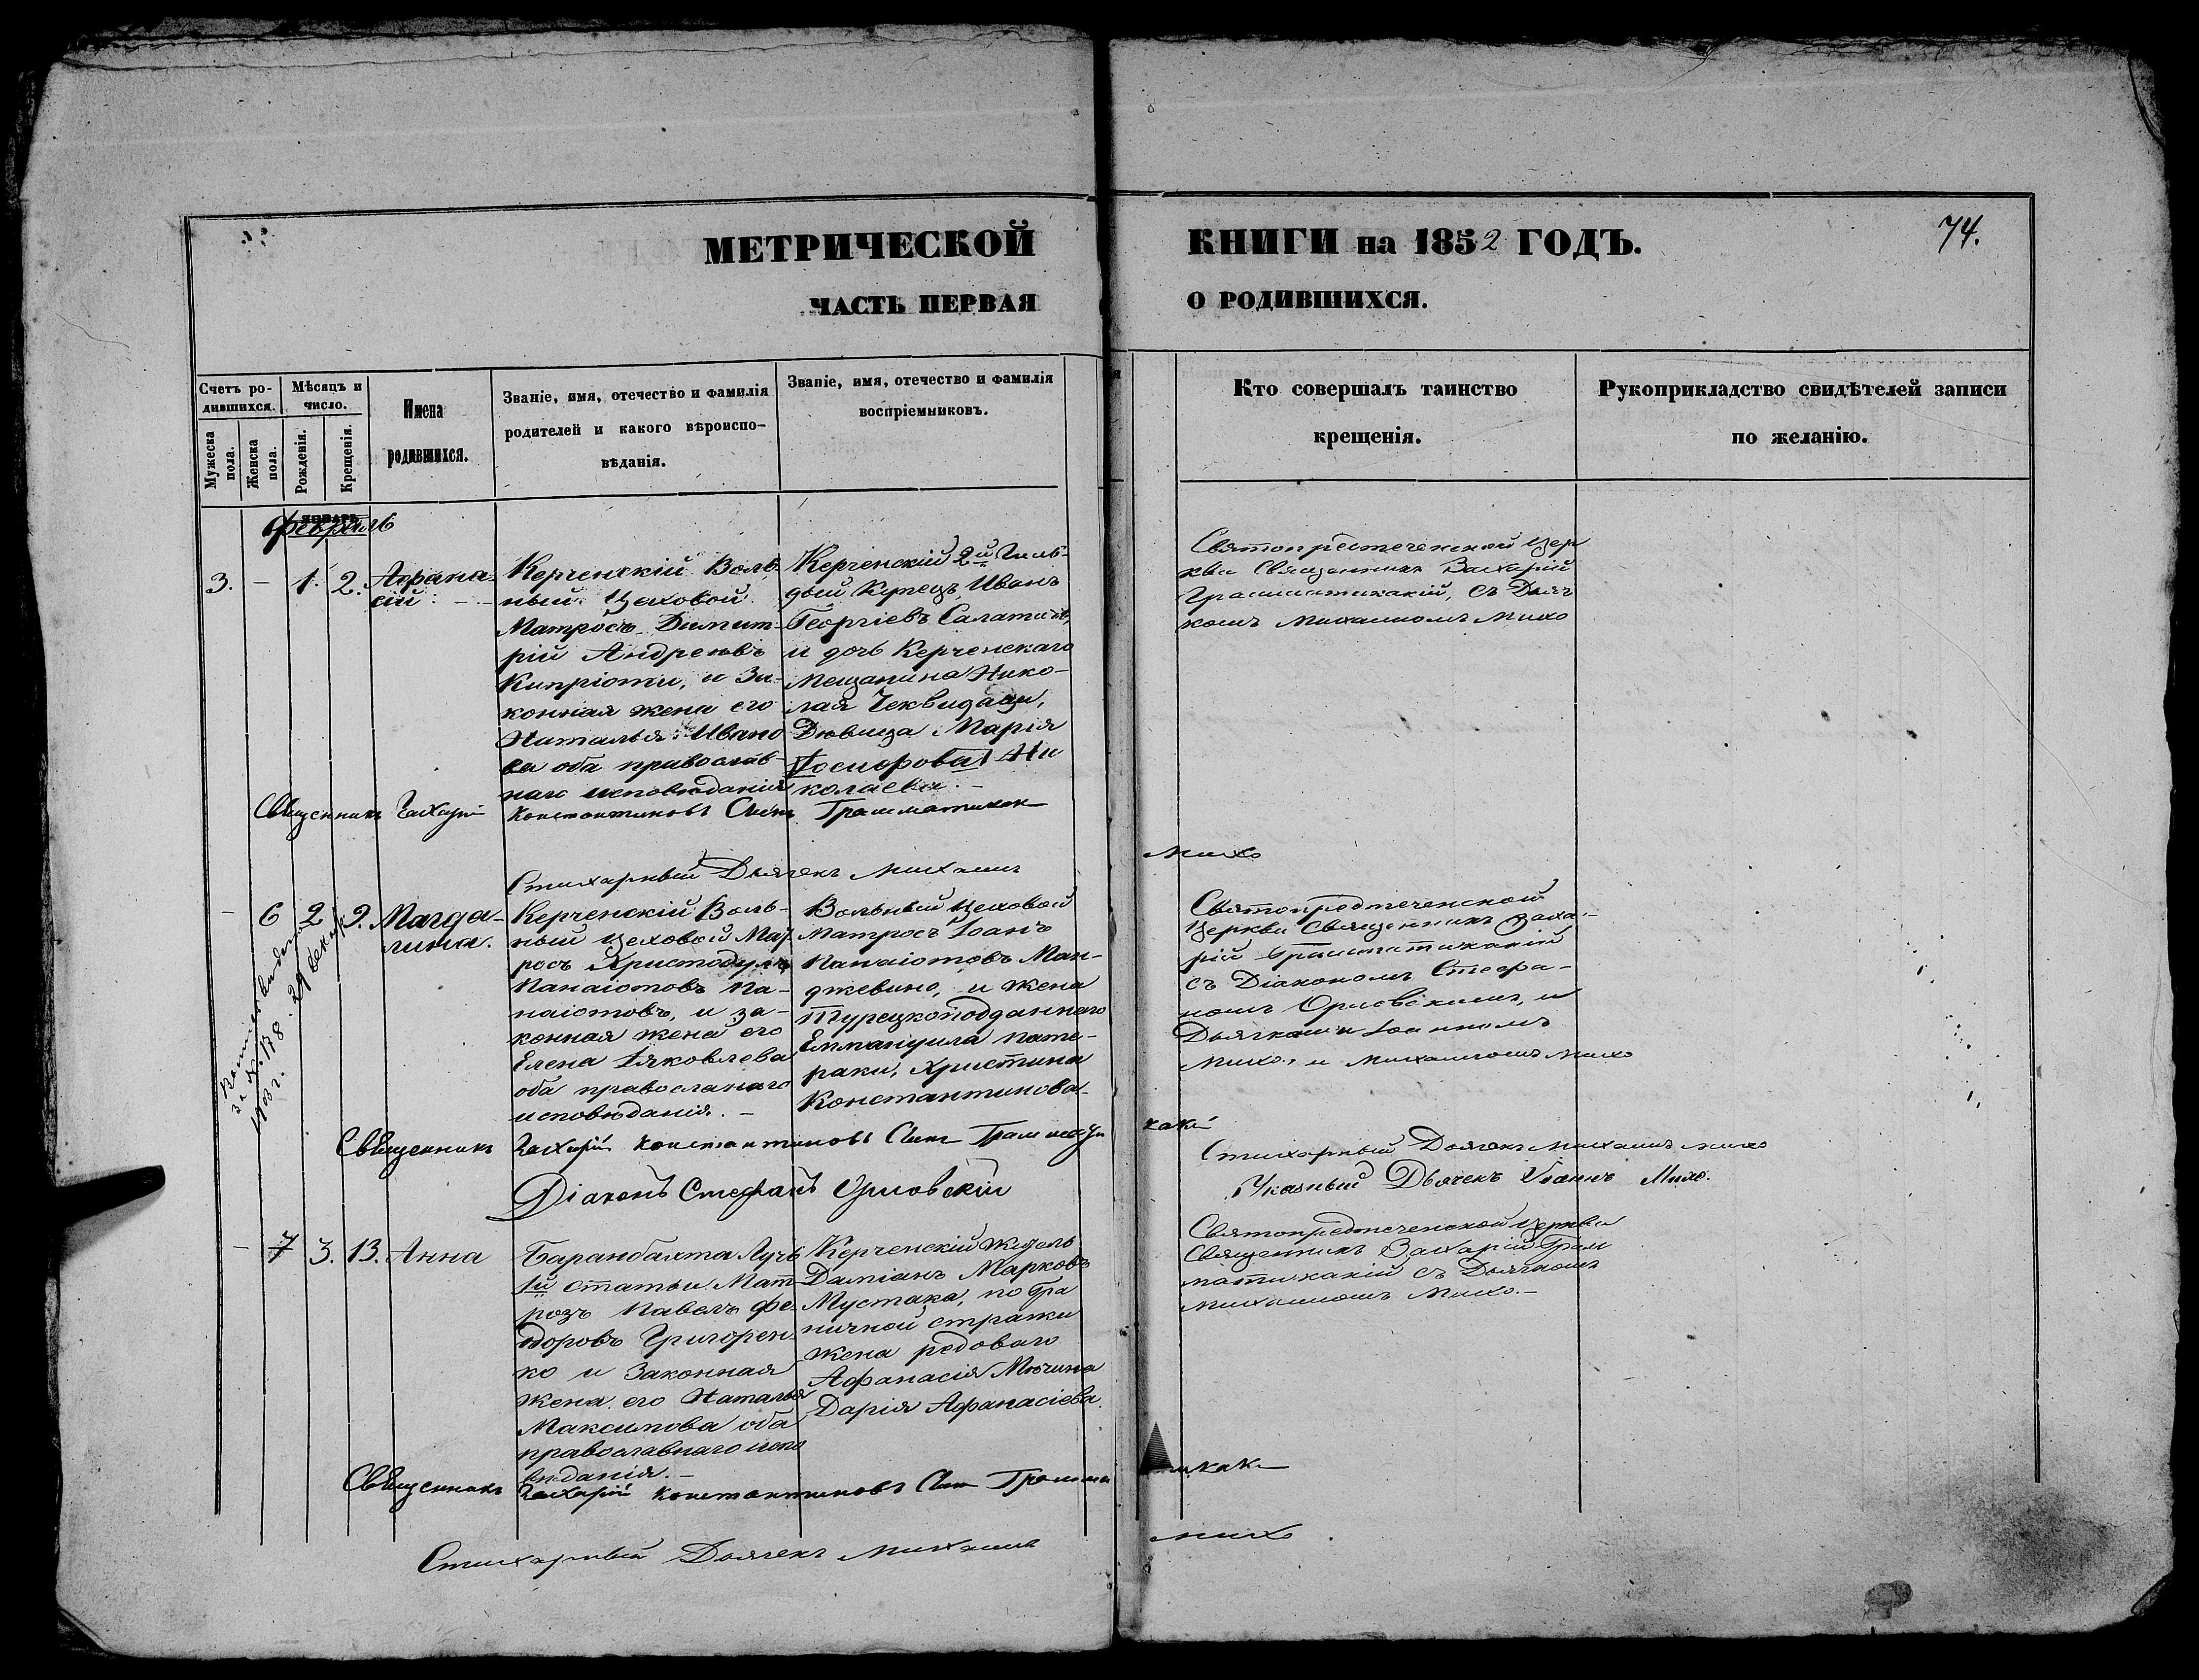 МЕТРИЧЕСКОЙ
КНИГИ на 1852 ГОДЪ.
74.
ЧАСТЬ ПЕРВАЯ
О РОДИВШИХСЯ.
Счетъ ро-
дившихся.
Мужеска
пола.
Женска
пола.
Мѣсяцъ и
число.
Рожденія.
Крещенія.
Имена
родившихся.
Званіе, имя, отечество и фамилія
родителей и какого вѣроиспо-
вѣданія.
Званіе, имя, отечество и фамилія
воспріемниковъ.
Кто совершалъ таинство
крещенія.
Рукоприкладство свидѣтелей записи
по желанію.
февраль
3. — 1. 2. Афана-
сій
Керченскій Воль-
ный Цеховой
Матросъ Димит-
рій Андреевъ
Кипріоти, и За-
конная жена его
Наталья Ивано
ва оба православ-
наго исповѣданія
Керченскій 2й Гиль-
дой Купецъ Иванъ
Георгіевъ
и дочь Керченскаго
Мещанина Нико-
лая
Дѣвица Марія
Ни
колаева.
Святопредтеченской Цер
кви Священникъ Захарій
Грамматикакій, съ Дьяч
комъ Михаиломъ Михо
Священникъ Захарій Константиновъ Сынъ
Стихарный Дьячекъ Михаилъ Михо
— 6 2 9. Магда-
лина.
Керченскій Воль-
ный цеховой Мат
росъ Христодулъ
Панаіотовъ Па-
наіотовъ, и за-
конная жена его
Елена Іяковлева
оба православнаго
исповѣданія. —
Вольный цеховой
матросъ Іоанъ
Панаіотовъ Ман-
джевино, и жена
Турецкоподданнаго
Еммануила Пате-
раки, Христина
Константинова.
Святопредтеченской
Церкви Священникъ Заха-
рій Грамматикакій
съ Діакономъ Стефа-
номъ Орловскимъ, и
Дьячками Іоанномъ
Михо, и Михаиломъ Михо
29 декаб
1903 г.
Священникъ Захарій Константиновъ Сынъ Граммати
каки
Стихарный Дьячекъ Михаилъ Михо
Діаконъ Стефанъ Орловскій
Указный Дьячекъ Іоаннъ Михо.
— 7 3. 13. Анна
1й статьи Мат
розъ Павелъ Фе-
доровъ Григорен-
ко и Законная
жена его Наталья
Максимова оба
православнаго испо
вѣданія. —
Керченскій житель
Даміанъ Марковъ
Мустака, погра
ничной стражи
жена редоваго
Афанасія Мючина
Дарія Афанасіева.
Святопредтеченской Церкви
Священникъ Захарій Грам
матикакій съ Дьячкомъ
Михаиломъ Михо. —
Священникъ Захарій Константиновъ Сынъ Грамма
тикаки
Стихарный Дьячекъ Михаилъ Михо